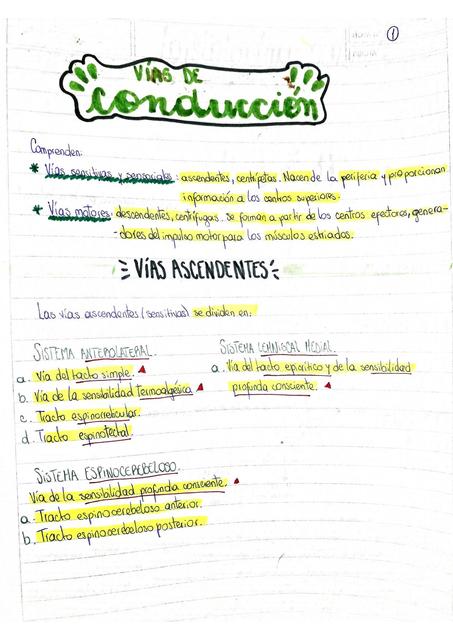 ①
VÍAS DE
conducción
Comprenden:
* Vías sensitivas y sensoriales: ascendentes, centrípetas. Nacen de la periferia y proporcionan
información a los centros superiores.
* Vías motores: descendentes, centrífugas. Se forman a partir de los centros efectores, genera-
-dores del impulso motor para los músculos estriados.
VÍAS ASCENDENTES
Las vías ascendentes (sensitivas) se dividen en:
SISTEMA ANTEROLATERAL.
a. Vía del tacto simple.
b. Vía de la sensibilidad termoalgésica
c. Tracto espinorreticular.
d. Tracto espinotectal.
SISTEMA LEMNISCAL MEDIAL.
a. Vía del tacto epicrítico y de la sensibilidad
profunda consciente.
SISTEMA ESPINOCEREBELOSO.
Vía de la sensibilidad profunda consciente.
a. Tracto espinocerebeloso anterior.
b. Tracto espinocerebeloso posterior.